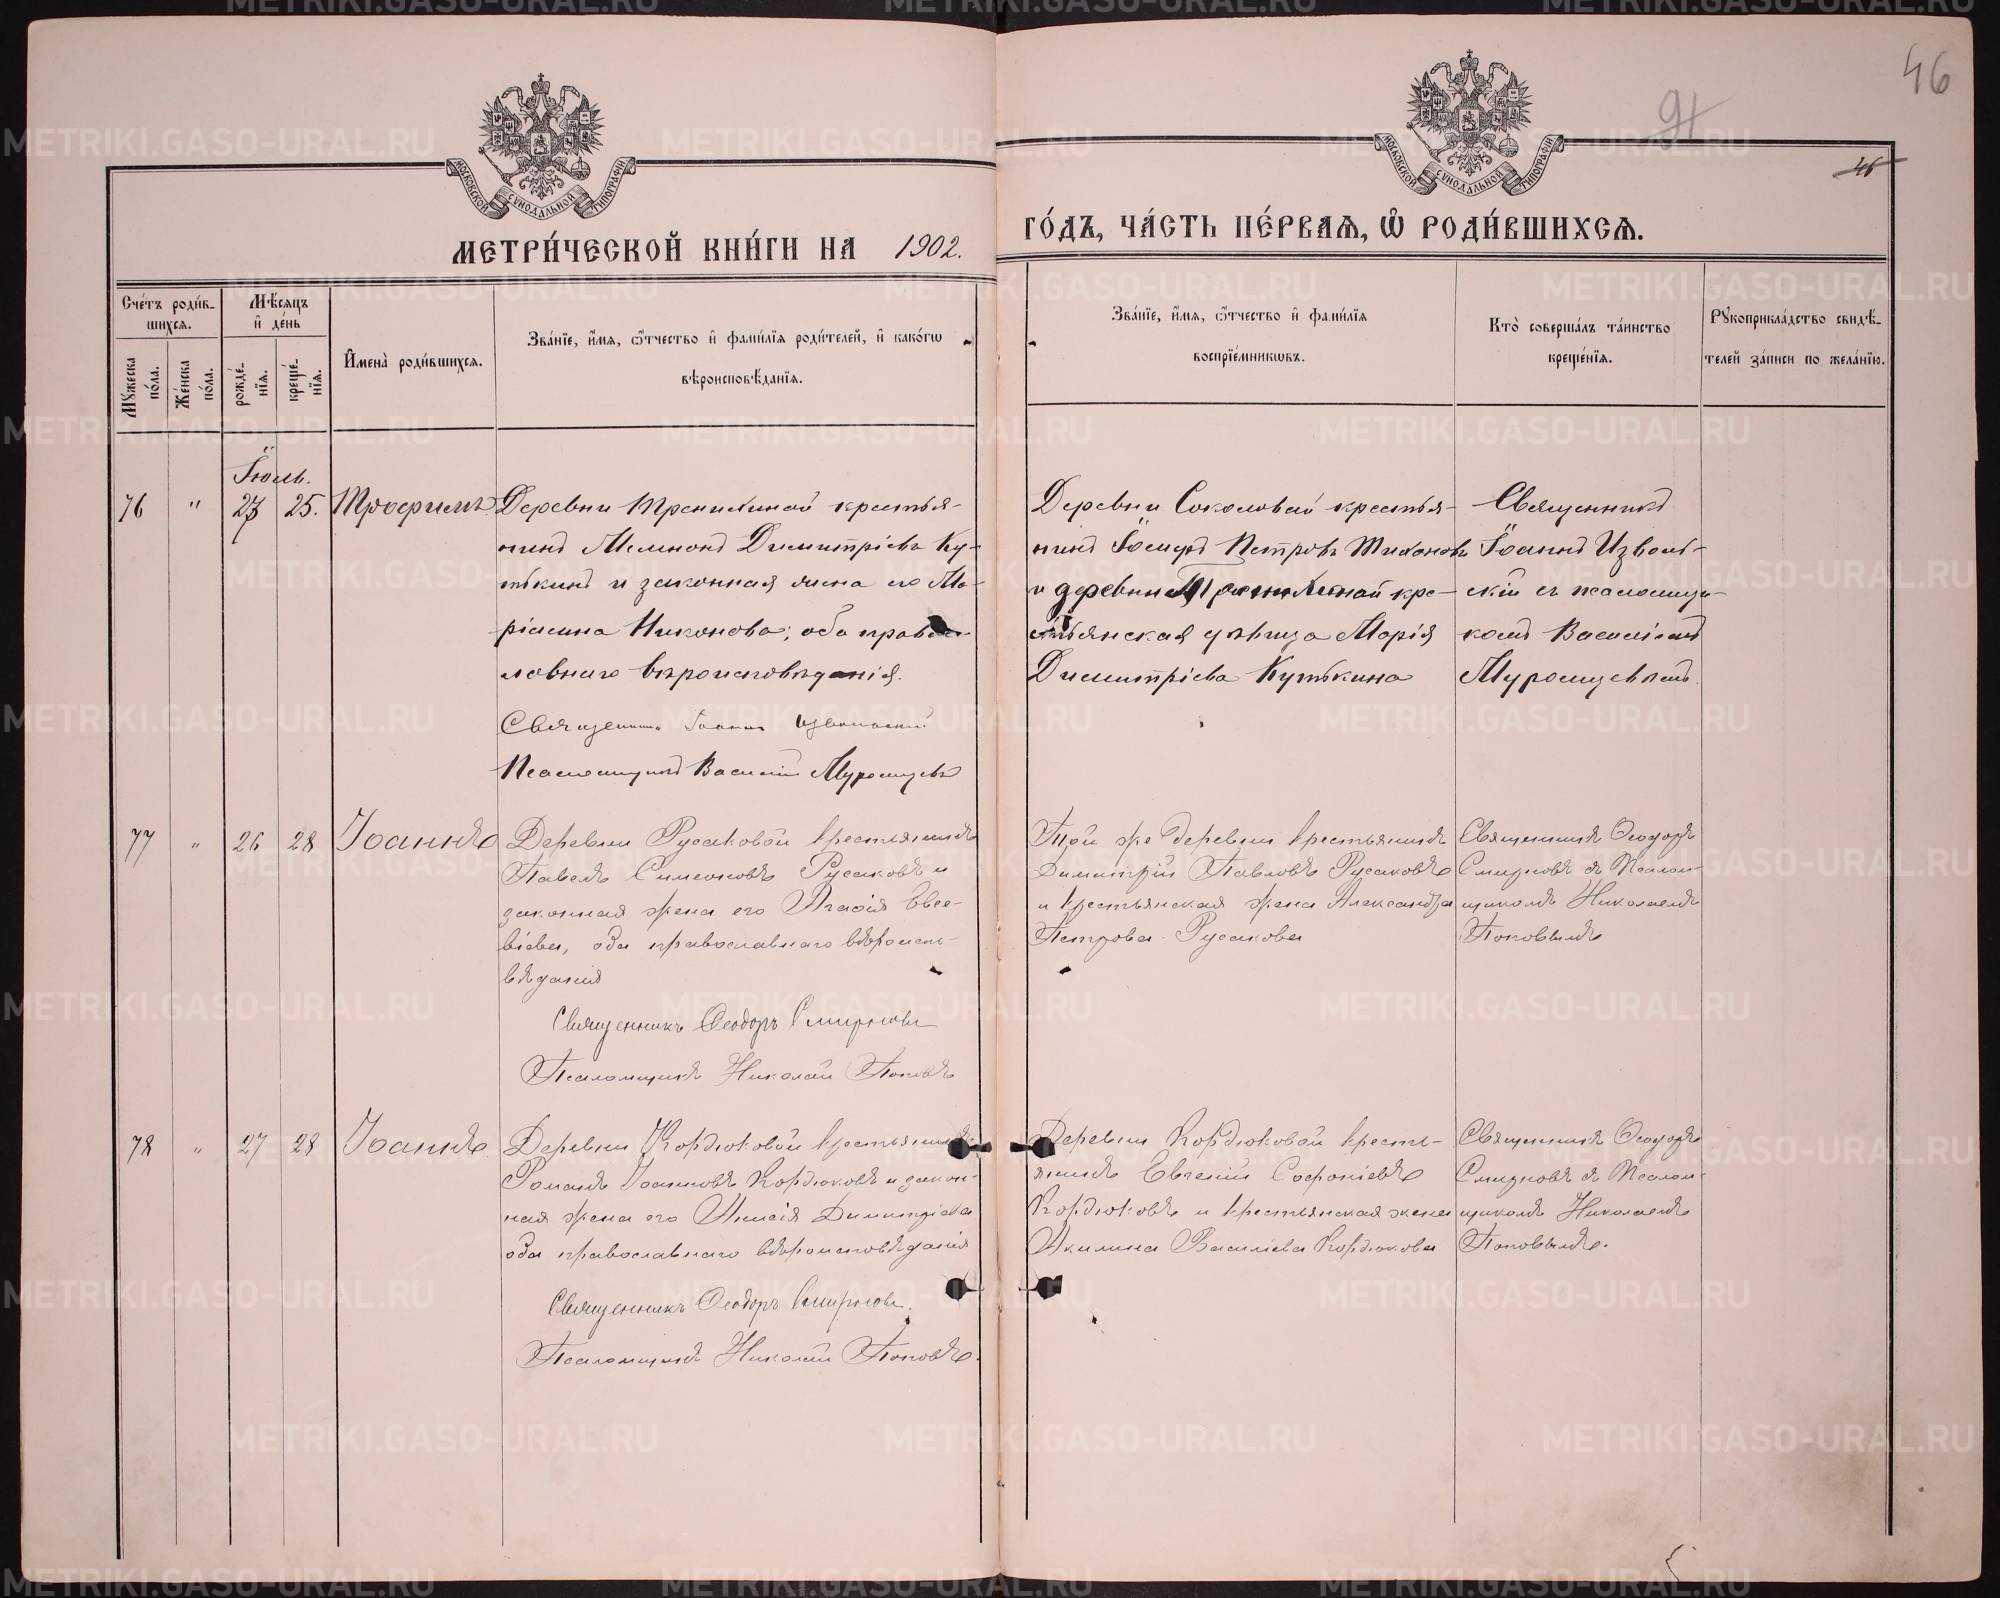 46
91
46
МОСКОВСКОЙ СѴНОДАЛЬНОЙ ТИПОГРАФІИ
МОСКОВСКОЙ СѴНОДАЛЬНОЙ ТИПОГРАФІИ
МЕТРИ́ЧЕСКОЙ КНИ́ГИ НА 1902.
ГО́ДЪ, ЧА́СТЬ ПЕ́РВАѦ, Ѡ҆ РОДИ́ВШИХСѦ.
Сче́тъ роди́в-
шихсѧ.
Мꙋжеска по́ла.
Же́нска по́ла.
Мѣ́сѧцъ
и҆ де́нь
рожде́-
нїѧ.
креще́-
нїѧ.
И҆мена̀ роди́вшихсѧ.
Зва́нїе, и҆́мѧ, ѻ҆́тчество и҆ фами́лїѧ роди́телей, и҆ како́гѡ
вѣроисповѣ́данїѧ.
Зва́нїе, и҆́мѧ, ѻ҆́тчество и҆ фами́лїѧ
воспрїе́мникѡвъ.
Кто̀ соверша́лъ та́инство
креще́нїѧ.
Рꙋкоприкла́дство свидѣ́-
телей за́писи по жела́нїю.
Іюль.
76 " 23 25. Трофимъ
Деревни крестья-
нинъ Мемнонъ Димитріевъ Ку-
тькинъ и законная жена его Ма-
ріамна Никонова; оба правос-
лавнаго вѣроисповѣданія.
Священникъ Іоаннъ Извольскій
Псаломщикъ Василій Муромцевъ
Деревни Соколовой крестья-
нинъ Іосифъ Петровъ Тихоновъ
и деревни кре-
стьянская дѣвица Марія
Димитріева Кутькина
Священникъ
Іоаннъ Изволь-
скій съ псаломщи-
комъ Василіемъ
Муромцевымъ.
77 " 26 28 Іоаннъ
Деревни Русаковой крестьянинъ
Павелъ Симеоновъ Русаковъ и
законная жена его Агафія Евсе-
віева, оба православнаго вѣроиспо-
вѣданія
Священникъ Ѳеодоръ Смирновъ
Псаломщикъ Николай Поповъ
Той же деревни крестьянинъ
Димитрій Павловъ Русаковъ
и крестьянская жена Александра
Петрова Русакова
Священникъ Ѳеодоръ
Смирновъ съ Псалом-
щикомъ Николаемъ
Поповымъ
78 " 27 28 Іоаннъ.
Деревни Кордюковой крестьянинъ
Романъ Іоанновъ Кордюковъ и закон-
ная жена его Анисія Димитріева
оба православнаго вѣроисповѣданія
Священникъ Ѳеодоръ Смирновъ.
Псаломщикъ Николай Поповъ.
Деревни Кордюковой кресть-
янинъ Евгеній Софоніевъ
Кордюковъ и крестьянская жена
Акилина Василіева Кордюкова
Священникъ Ѳеодоръ
Смирновъ съ Псалом-
щикомъ Николаемъ
Поповымъ.
METRIKI.GASO-URAL.RU